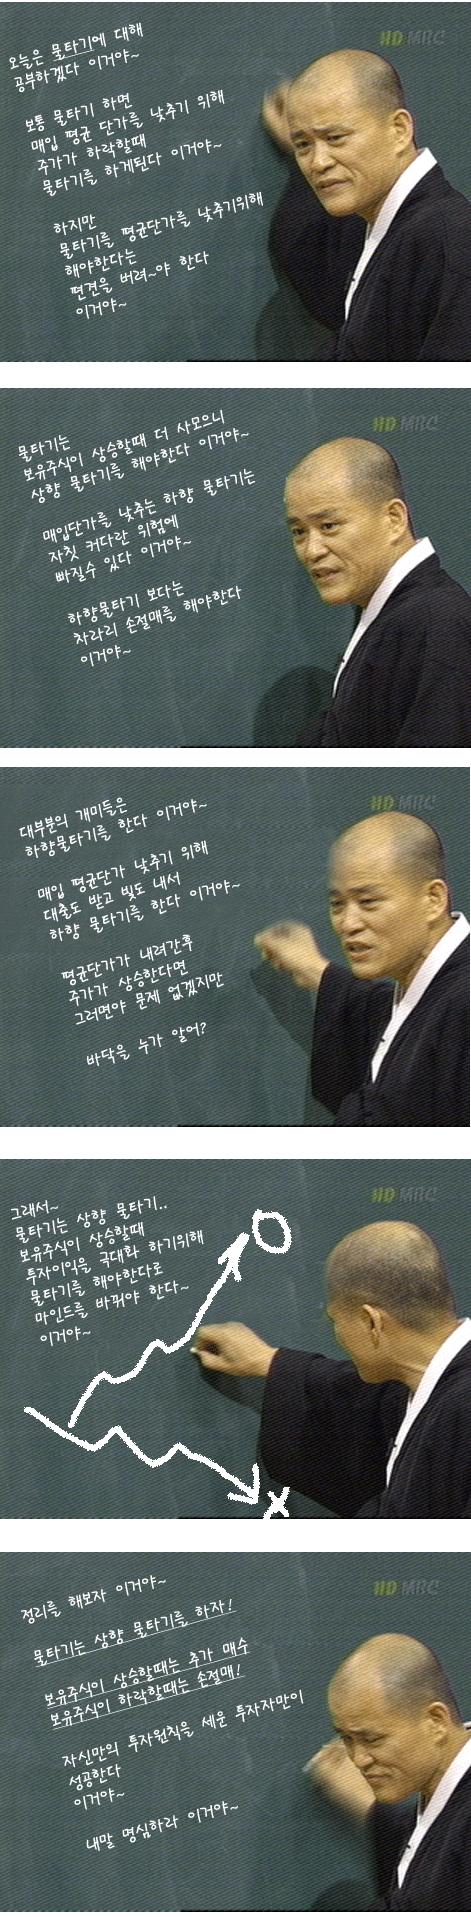 HD MBC
오늘은 물타기에 대해
공부하겠다 이거야~
보통 물타기 하면
매입 평균 단가를 낮추기 위해
주가가 하락할때
물타기를 하게된다 이거야~
하지만
물타기를 평균단가를 낮추기위해
해야한다는
편견을 버려~야 한다
이거야~
HD MBC
물타기는
보유주식이 상승할때 더 사모으니
상향 물타기를 해야한다 이거야~
매입단가를 낮추는 하향 물타기는
자칫 커다란 위험에
빠질수 있다 이거야~
하향물타기 보다는
차라리 손절매를 해야한다
이거야~
HD MBC
대부분의 개미들은
하향물타기를 한다 이거야~
매입 평균단가 낮추기 위해
대출도 받고 빚도 내서
하향 물타기를 한다 이거야~
평균단가가 내려간후
주가가 상승한다면
그러면야 문제 없겠지만
바닥을 누가 알어?
HD MBC
그래서~
물타기는 상향 물타기..
보유주식이 상승할때
투자이익을 극대화 하기위해
물타기를 해야한다로
마인드를 바꿔야 한다~
이거야~
HD MBC
정리를 해보자 이거야~
물타기는 상향 물타기를 하자!
보유주식이 상승할때는 추가 매수
보유주식이 하락할때는 손절매!
자신만의 투자원칙을 세운 투자자만이
성공한다
이거야~
내말 명심하라 이거야~